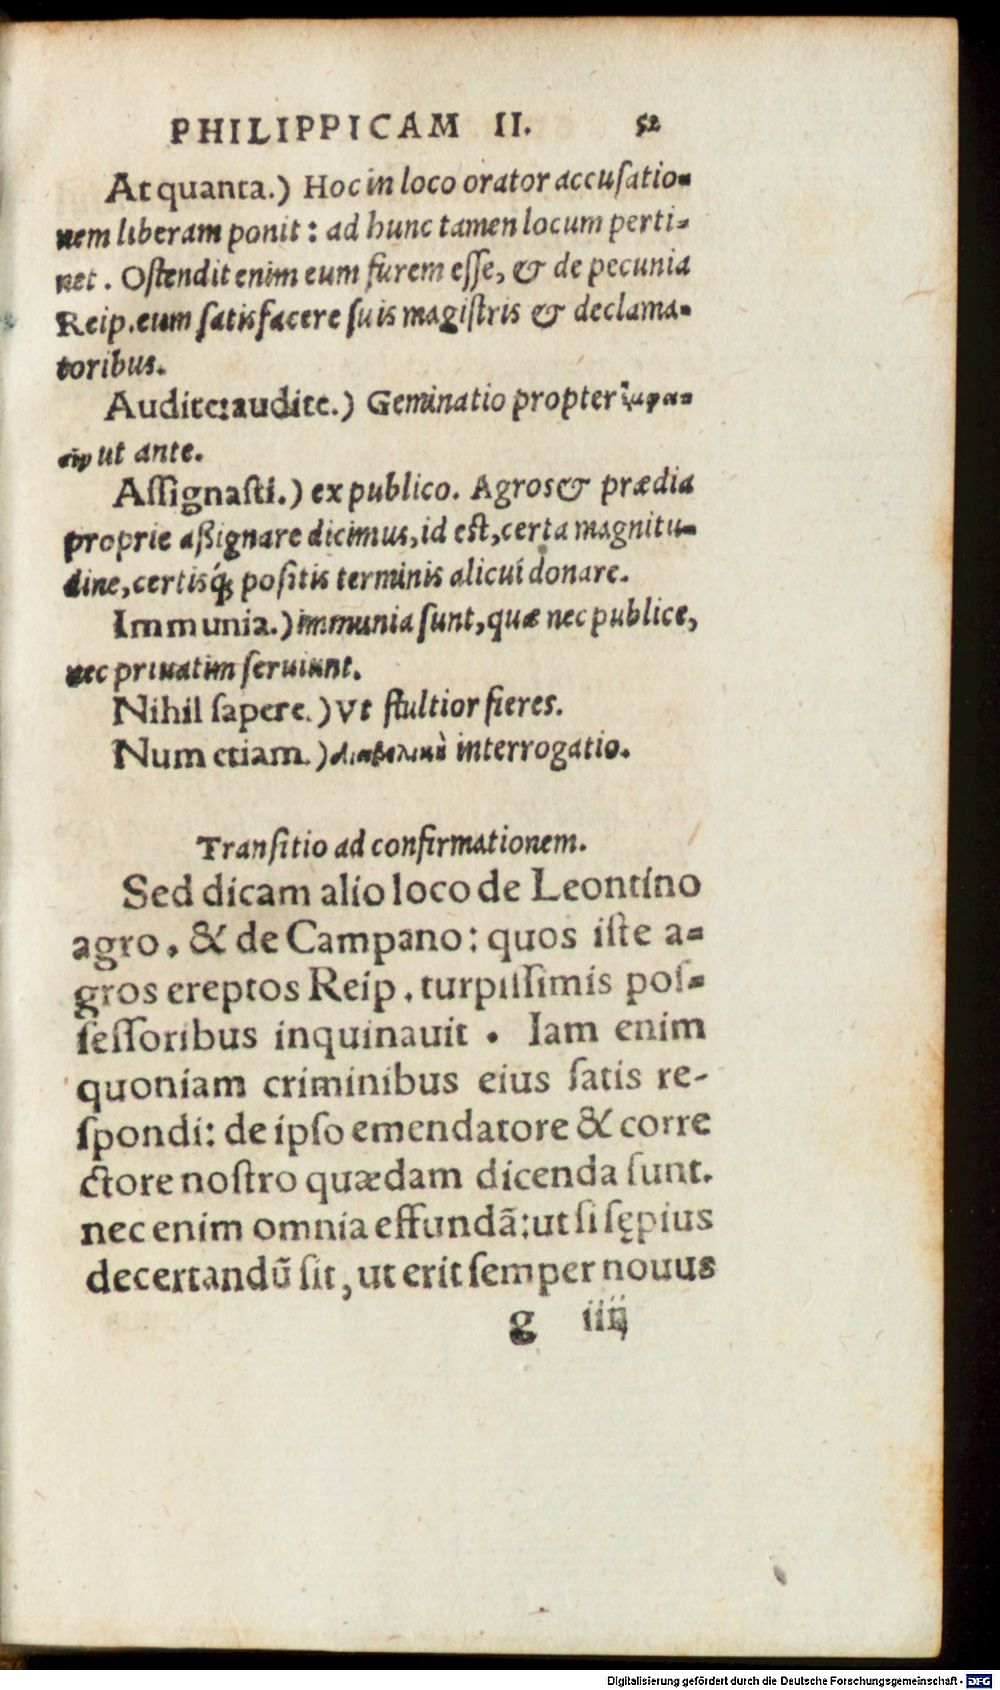 PHILIPPICAM II. 52
At quanta.) Hoc in loco orator accuſatio-
nem liberam ponit: ad hunc tamen locum perti-
net. Oſtendit enim eum furem eſſe, & de pecunia
Reip. eum ſatisfacere ſuis magiſtris & declama-
toribus.
Audite: audite.) Geminatio propter
ut ante.
Aſſignaſti.) ex publico. Agros & prædia
proprie aßignare dicimus, id eſt, certa magnitu-
dine, certisq́; poſitis terminis alicui donare.
Immunia.) immunia ſunt, quæ nec publice,
nec priuatim ſeruiunt.
Nihil ſapere.) Vt ſtultior fieres.
Num etiam.) interrogatio.
Tranſitio ad confirmationem.
Sed dicam alio loco de Leontino
agro, & de Campano: quos iſte a-
gros ereptos Reip. turpiſſimis poſ-
ſeſſoribus inquinauit. Iam enim
quoniam criminibus eius ſatis re-
ſpondi: de ipſo emendatore & corre
ctore noſtro quædam dicenda ſunt.
nec enim omnia effundã: ut ſi ſępius
decertandũ ſit, ut erit ſemper nouus
g iiij
Digitalisierung gefördert durch die Deutsche Forschungsgemeinschaft - DFG